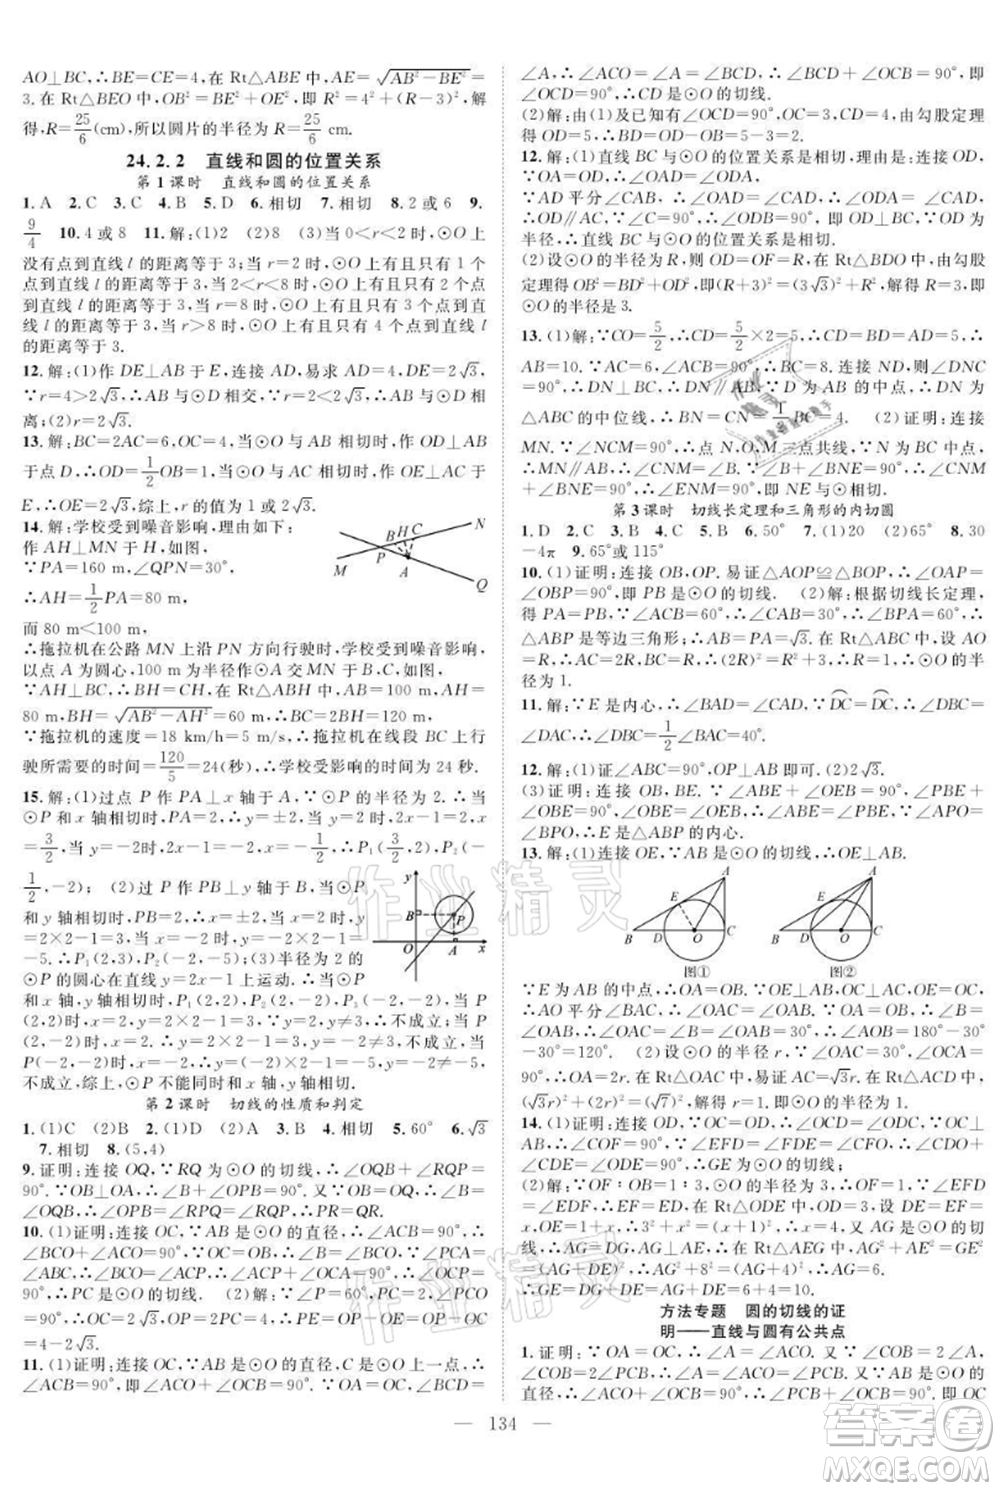 AO⊥BC,∴BE=CE=4,在 Rt△ABE 中,AE=√(AB²-BE²)=
3.在 Rt△BEO 中,OB²=BE²+OE²,即 R²=4²+(R-3)²,解
得,R=25/6(cm),所以圆片的半径为 R=25/6 cm.
24.2.2 直线和圆的位置关系
第 1 课时 直线和圆的位置关系
1. A 2. C 3. C 4. B 5. D 6. 相切 7. 相切 8. 2 或 6 9.
9/4 10. 4 或 8 11. 解:(1)2 (2)8 (3)当 0<r<2 时,⊙O 上
没有点到直线 l 的距离等于 3;当 r=2 时,⊙O 上有且只有 1 个
点到直线 l 的距离等于 3,当 2<r<8 时,⊙O 上有且只有 2 个点
到直线 l 的距离等于 3,当 r=8 时,⊙O 上有且只有 3 个点到直
线 l 的距离等于 3,当 r>8 时,⊙O 上有且只有 4 个点到直线 l
的距离等于 3.
12. 解:(1)作 DE⊥AB 于 E,连接 AD,易求 AD=4,DE=2√3,
∵r=4>2√3,∴AB 与⊙D 相交;∵r=1<2√3,∴AB 与⊙D 相
离;(2)r=2√3.
13. 解:BC=2AC=6,当⊙O 与 AB 相切时,设切点为 D,连接 OD
于点 D,∴OD=1/2OB=1;当⊙O 与 AC 相切时,作 OE⊥AC 于
E,∴OE=2√3,综上,r 的值为 1 或 2√3.
14. 解:学校受到噪音影响,理由如下:
作 AH⊥MN 于 H,如图,
∵PA=160 m,∠QPN=30°,
∴AH=1/2PA=80 m,
而 80 m<100 m,
∴拖拉机在公路 MN 上沿 PN 方向行驶时,学校受到噪音影响,
以点 A 为圆心,100 m 为半径作⊙A 交 MN 于 B、C,如图,
∵AH⊥BC,∴BH=CH,在 Rt△ABH 中,AB=100 m,AH=
80 m,BH=√(AB²-AH²)=60 m,∴BC=2BH=120 m,
∵拖拉机的速度=18 km/h=5 m/s,∴拖拉机在线段 BC 上行
驶所需要的时间=120/5=24(秒),∴学校受影响的时间为 24 秒.
15. 解:(1)过点 P 作 PA⊥x 轴于 A,∵⊙P 的半径为 2,∴当
⊙P 与 x 轴相切时,PA=2,∴y=±2,当 y=2 时,2x-1=2,x=
3/2,当 y=-2 时,2x-1=-2,x=-1/2,∴点 P(3/2,2)或(-
1/2,-2);(2)过 P 作 PB⊥y 轴于 B,当⊙P
和 y 轴相切时,PB=2,∴x=±2,当 x=2 时,y
=2×2-1=3,当 x=-2 时,y=-2×2-1=
-5.∴点 P(2,3)或(-2,-5);(3)∵半径为 2 的
⊙P 的圆心在直线 y=2x-1 上运动.∴当⊙P
和 x 轴,y 轴相切时,P₁(2,2),P₂(-2,2),P₃(-2,-2),P₄(2,-2).当 P
(2,2)时,∴y=2×2-1=3,∵y≠3,∴不成立;当
P(-2,-2)时,∴y=-2×2-1=-5.∵y≠-5,∴不
成立,综上,⊙P 不能同时和 x 轴,y 轴相切.
第 2 课时 切线的性质和判定
1. (1)C (2)B 2. (1)D (2)A 3. B 4. B 5. 60° 6. √3
7. 相切 8. (5,4)
9. 证明:连接 OQ,∵RQ 为⊙O 的切线,∴∠OQB+∠RQP=
90°.∵OB⊥OA,∴∠B+∠OPB=90°.又∵OB=OQ,∴∠B=
∠OQB,∴∠OPB=∠RPQ=∠RQP,∴PR=QR.
10. (1)证明:连接 OC,∵AB 是⊙O 的直径,∴∠ACB=90°,
∴∠BCO+∠ACO=90°,∵OC=OB,∴∠B=∠BCO,∵∠PCA=
∠ABC,∴∠BCO=∠ACP,∴∠ACP+∠OCA=90°,∴∠OCP
=90°,∴PC 是⊙O 的切线;(2)解:∵∠P=30°,PC=2√3,∠PCO
=90°,∴OC=2,OP=2OC=4,∴PA=OP-OA
=4-2√3.
11. (1)证明:连接 OC,∵AB 为⊙O 的直径,C 为⊙O 上一点,
∴∠ACB=90°,即∠A+∠ABC=90°.又∵OB=OC,∠BCD=
∠A,∴∠OBC=∠OCB,∴∠BCD+∠OCB=90°,即
∠OCD=90°,∴CD 是⊙O 的切线.
(2)解:由(1)及已知有∠OCD=90°,OC=3,CD=4,据勾股定理
得 OD=5,∴BD=OD-OB=5-3=2.
12. 解:(1)直线 BC 与⊙O 的位置关系是相切,理由是:连接 OD,
∵OA=OD,∴∠OAD=∠ODA,
∵AD 平分∠CAB,∴∠OAD=∠CAD,∴∠ODA=∠CAD,
∴OD∥AC,∵∠C=90°,∴∠ODB=90°,即 OD⊥BC,∵OD 为
半径,∴直线 BC 与⊙O 的位置关系是相切.
(2)设⊙O 的半径为 R,则 OD=R,在 Rt△BDO 中,由勾股
定理得 OB²=BD²+OD²,即(R+3)²=(3√3)²+R²,解得:R=3,
即⊙O 的半径是 3.
13. (1)解:∵CO=5/2,∴CD=5/2×2=5,∴CD=BD=AD=5,
∴AB=10,∴BC=√(AB²-AC²)=8.∵CD 为⊙O 的切线,∠DNC
=90°,∴DN⊥CB,∴DN∥AC,∵点 D 为 AB 的中点,∴DN 为
△ABC 的中位线,∴BN=CN=1/2BC=4. (2)证明:连接
MN.∵∠NCM=90°,∴点 N、O、M 三点共线,∵∠CNM=∠B,
∴MN∥AB,∵NE⊥AB,∴NE⊥MN,即 NE 为⊙O 的切线.
第 3 课时 切线长定理和三角形的内切圆
1. D 2. C 3. B 4. C 5. B 6. 50° 7. (1)20 (2)65° 8. 30
-4π 9. 65°或 115°
10. (1)证明:连接 OB,OP,易证△AOP≌△BOP,∴∠OBP=
∠OAP=90°,即 PB 是⊙O 的切线. (2)解:根据切线长定理,
得 PA=PB,∵∠ACB=60°,∴∠CAB=30°,∴∠BPA=60°,
∴△APB 是等边三角形,∴PA=AB=√3.在 Rt△ABC 中,设 AO
=R,∴AC=2R,BC=R,∴(2R)²=R²+(√3)²,∴R=1,即⊙O 的半
径为 1.
11. 解:∵E 是内心,∴∠BAD=∠CAD,∵DC=DC,∴∠CAD=
∠DBC,∠BAD=∠DBC=1/2∠BAC=40°.
12. 解:(1)证∠ABC=90°,OB⊥AP 即可.(2)2√3.
(3)证明:连接 OB,BE.∵∠ABE+∠OEB=90°,∠PBE+
∠OBE=90°,∠OBE=∠OEB,∴∠ABE=∠PBE,∵∠APO=
∠BPO,∴E 是△ABP 的内心.
13. 解:(1)连接 OE,∵AB 是⊙O 的切线,∴OE⊥AB.
图① 图②
∵E 为 AB 的中点,∴OA=OB.∵OE⊥AB,OC⊥AC,OE=OC,
∴AO 平分∠BAC,∴∠OAC=∠OAB=∠B=30°,∴∠BAC=180°
-30°=120°. (2)设⊙O 的半径为 r,∵∠OAC=30°,∠ACO
=90°,∴OA=2r.在 Rt△OAC 中,AC=√3r.在 Rt△ACD 中,
(√3r)²+(2r)²=(√7)²,解得 r=1,∴⊙O 的半径为 1.
14. (1)证明:连接 OD,∵DG=EG,∴∠GDE=∠DEG=∠OEC,
∵∠COF=90°,∴∠FED=∠GDE=∠CFO,∵OD=OC,∴∠OCD=
∠CDO,∴∠ODE=90°,∴GE 为⊙O 的切线;
(2)解:∵OF:OB=1:3,⊙O 的半径为 3,∴OF=1.∵∠EFD=
∠EDF,∴ED=EF.在 Rt△ODE 中,OD=3,设 DE=
x,OE=1+x,∴3²+x²=(x+1)²,解得 x=4.∵AG 为⊙O 的切
线,∴AG⊥AE,∴∠GAE=90°.在 Rt△AGE 中,AG²+AE²=GE²
∵GD=AG,AE=OA+OE=8,∴AG²+8²=(AG+4)²,∴AG=6,
∴GE=GD+DE=AG+DE=6+4=10.
方法专题 圆的切线的证
明——直线与圆有公共点
1. 证明:∵OA=OC,∴∠A=∠ACO,∴∠COB=2∠A,
∠COB=2∠PCB,∴∠A=∠ACO=∠PCB,∵AB 是⊙O 的
直径,∴∠ACO+∠OCB=90°,∴∠PCB+∠OCB=90°,即 OC
134
作业精灵
作业精灵
答案卷
MXQE.COM